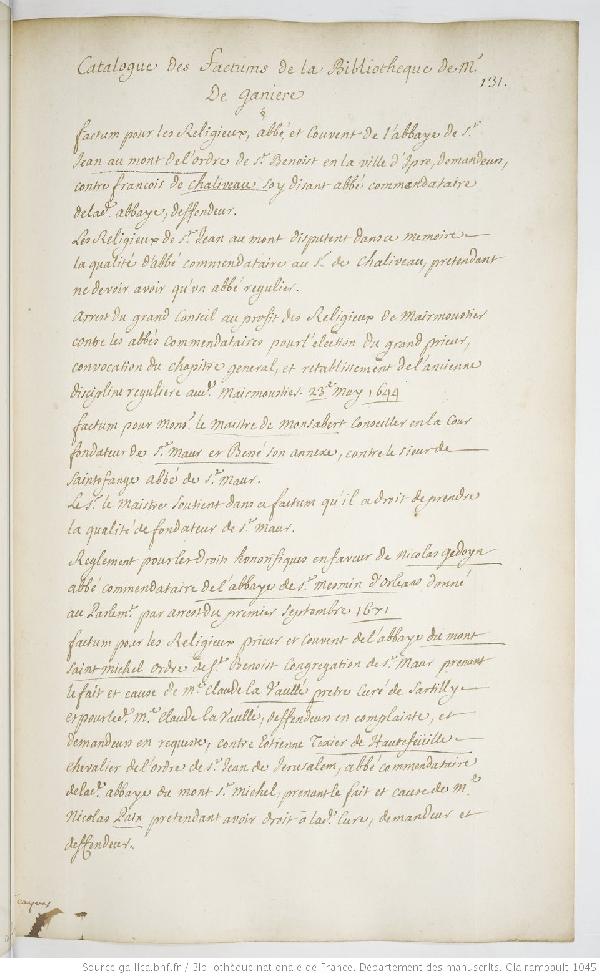 Catalogue des factums de la Bibliotheque de Mr.
De Ganiere
131.
factum pour les Religieux, abbé, et Couvent de l'abbaye de St.
Jean au mont de l'ordre de St. Benoist en la ville d'Ipre, demandeurs,
contre francois de Chaliveau soy disant abbé commendataire
de lad. abbaye, deffendeur.
Les Religieux de St. Jean au mont disputent dans ce memoire
la qualité d'abbé commendataire au Sr. de Chaliveau, pretendant
ne devoir avoir qu'un abbé regulier.
Arrest du grand Conseil au profit des Religieux de Mairmoustier
contre les abbés Commendataires pour l'election du grand prieur,
convocation du chapitre general, et retablissement de l'ancienne
discipline reguliere aud. Mairmoustier. 23e. May 1644
factum pour Mons. le Maistre de Monsabert Conseiller en la Cour
fondateur de St. Maur et Bené son annexe, contre le sieur de
Saintefange abbé de St. Maur.
Le Sr. le Maistre soutient dans ce factum qu'il a droit de prendre
la qualité de fondateur de St. Maur.
Reglement pour les droits honorifiques en faveur de Nicolas Gedoyn
abbé commendataire de l'abbaye de St. Mesmin d'Orleans donné
au Parlemt. par arrest du premier Septembre 1671
factum pour les Religieux prieur et couvent de l'abbaye du mont
Saint michel ordre de St. Benoist Congregation de St. Maur prenant
le fait et cause de Mre. Claude la Vaulle pretre Curé de Sartilly
et pour led. Mre. Claude la Vaulle, deffendeur en complainte, et
demandeurs en requeste, contre Estienne Texier de Hautefeüille
chevalier de l'ordre de St. Jean de Jerusalem, abbé commendataire
de lad. abbaye du mont St. Michel, prenant le fait et cause de Mre.
Nicolas Pain pretendant avoir droit à lad. Cure, demandeur et
deffendeur.
Source gallica.bnf.fr / Bibliothèque nationale de France. Département des manuscrits. Clairambault 1045